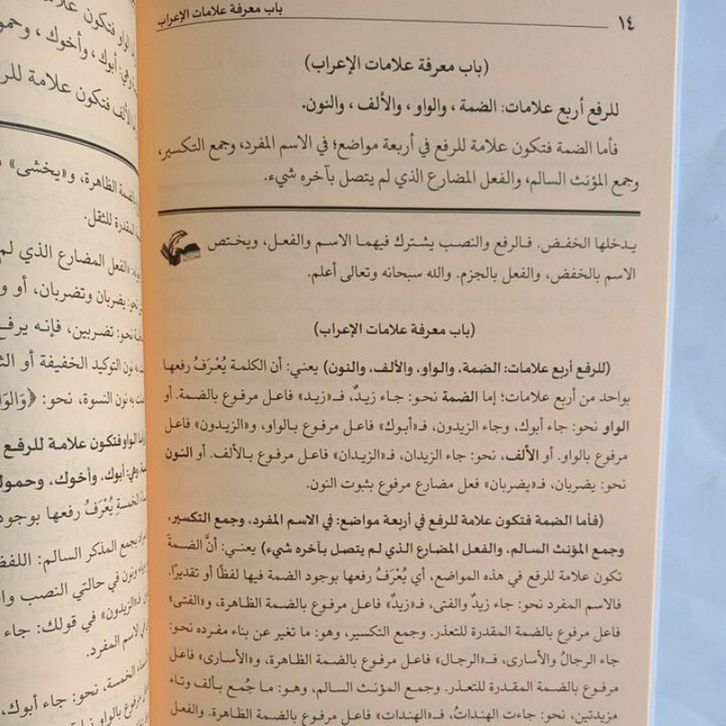 ١٤
باب معرفة علامات الإعراب
(باب معرفة علامات الإعراب)
للرفع أربع علامات: الضمة ، والواو ، والألف ، والنون.
فأما الضمة فتكون علامة للرفع في أربعة مواضع؛ في الاسم المفرد، وجمع التكسير،
وجمع المؤنث السالم، والفعل المضارع الذي لم يتصل بآخره شيء.
يدخلها الخفض. فالرفع والنصب يشترك فيهما الاسم والفعل، ويختص
الاسم بالخفض، والفعل بالجزم. والله سبحانه وتعالى أعلم.
(باب معرفة علامات الإعراب)
(للرفع أربع علامات: الضمة، والواو، والألف، والنون) يعني: أن الكلمة يُعْرَفُ رفعها
بواحد من أربع علامات؛ إما الضمة نحو: جاء زيدٌ، فـ«زيد» فاعل مرفوع بالضمة. أو
الواو نحو: جاء أبوك، وجاء الزيدون، فـ«أبوك» فاعل مرفوع بالواو، و«الزيدون» فاعل
مرفوع بالواو. أو الألف، نحو: جاء الزيدان، فـ«الزيدان» فاعل مرفوع بالألف. أو النون
نحو: يضربان، فـ«يضربان» فعل مضارع مرفوع بثبوت النون.
(فأما الضمة فتكون علامة للرفع في أربعة مواضع: في الاسم المفرد، وجمع التكسير،
وجمع المؤنث السالم، والفعل المضارع الذي لم يتصل بآخره شيء) يعني: أنَّ الضمةَ
تكون علامة للرفع في هذه المواضع، أي يُعْرَفُ رفعها بوجود الضمة فيها لفظًا أو تقديرًا.
فالاسم المفرد نحو: جاء زيدٌ والفتى، فـ«زيدٌ» فاعل مرفوع بالضمة الظاهرة، و«الفتى»
فاعل مرفوع بالضمة المقدرة للتعذر. وجمع التكسير، وهو: ما تغير عن بناء مفرده نحو:
جاء الرجالُ والأسارى، فـ«الرجال» فاعل مرفوع بالضمة الظاهرة، و«الأسارى» فاعل
مرفوع بالضمة المقدرة للتعذر. وجمع المؤنث السالم، وهو: ما جُمع بألف وتاء
مزيدتين، نحو: جاءت الهنداتُ، فـ«الهندات» فاعل مرفوع بالضمة الظاهرة. والفعل
الواو فتكون علامة
وهي: أبوك، وأخوك، وحمو
الألف فتكون علامة للر
الضمة الظاهرة، و«يخشى»
المقدرة للثقل.
«الفعل المضارع الذي لم
نحو: يضربان وتضربان، أو و
نحو: تضربين، فإنه يرفع
نون التوكيد الخفيفة أو الث
به نون النسوة، نحو: ﴿وَالوَا
الواو فتكون علامة للرفع
وهي: أبوك، وأخوك، وحموك
الخمسة يُعْرَفُ رفعها بوجود
بجمع المذكر السالم: اللفظ
ونون في حالتي النصب وا
«الزيدون» في قولك: جاء
في الاسم المفرد.
الخمسة، نحو: جاء أبوك،
مرفوع بالواو نيابة